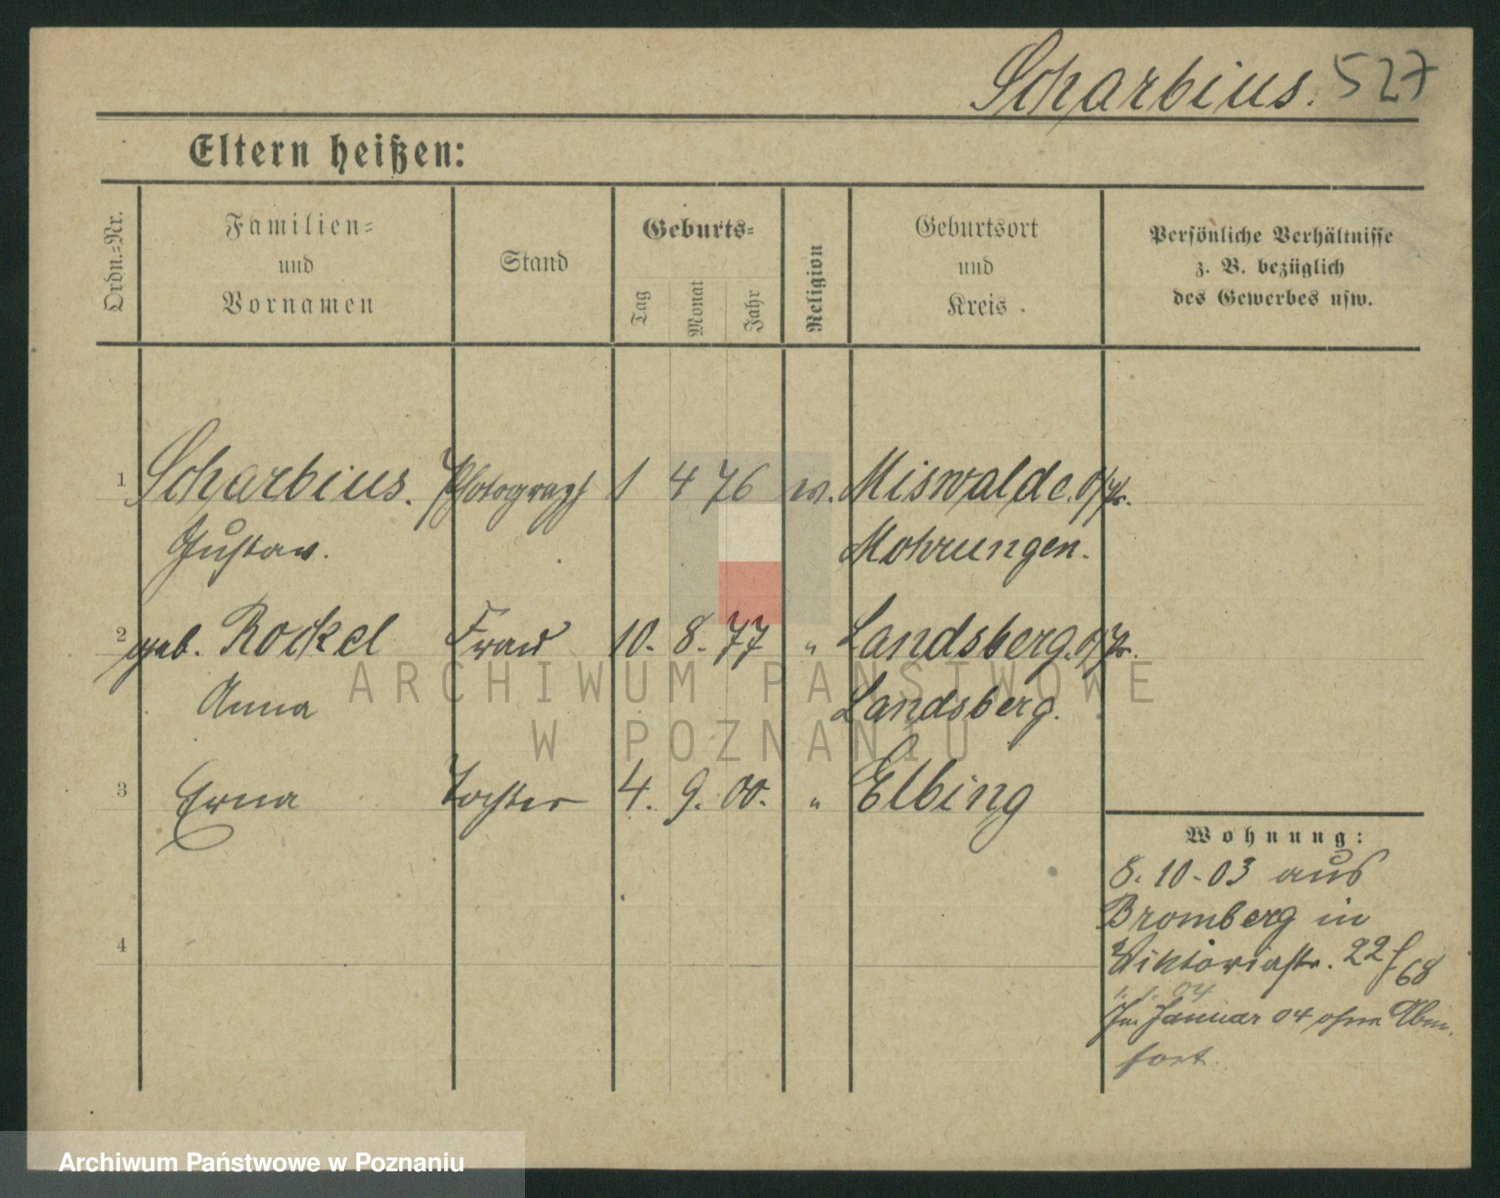 Scharbius. 527
Eltern heißen:
Ordn.-Nr.
Familien-
und
Vornamen
Stand
Geburts-
Tag
Monat
Jahr
Religion
Geburtsort
und
Kreis.
Persönliche Verhältnisse
z. B. bezüglich
des Gewerbes usw.
1 Scharbius. Photograph 1 4 76 ev. Miswalde. O/Pr.
Gustav. Mohrungen.
2 geb. Rockel Frau 10. 8. 77 " Landsberg. O/Pr.
Anna Landsberg.
3 Erna Tochter 4. 9. 00. " Elbing
4
Wohnung:
8.10-03 aus
Bromberg in
Viktoriastr. 22 f 68
1. 1. 04
Im Januar 04 ohne Abm.
fort.
ARCHIWUM PAŃSTWOWE
W POZNANIU
Archiwum Państwowe w Poznaniu